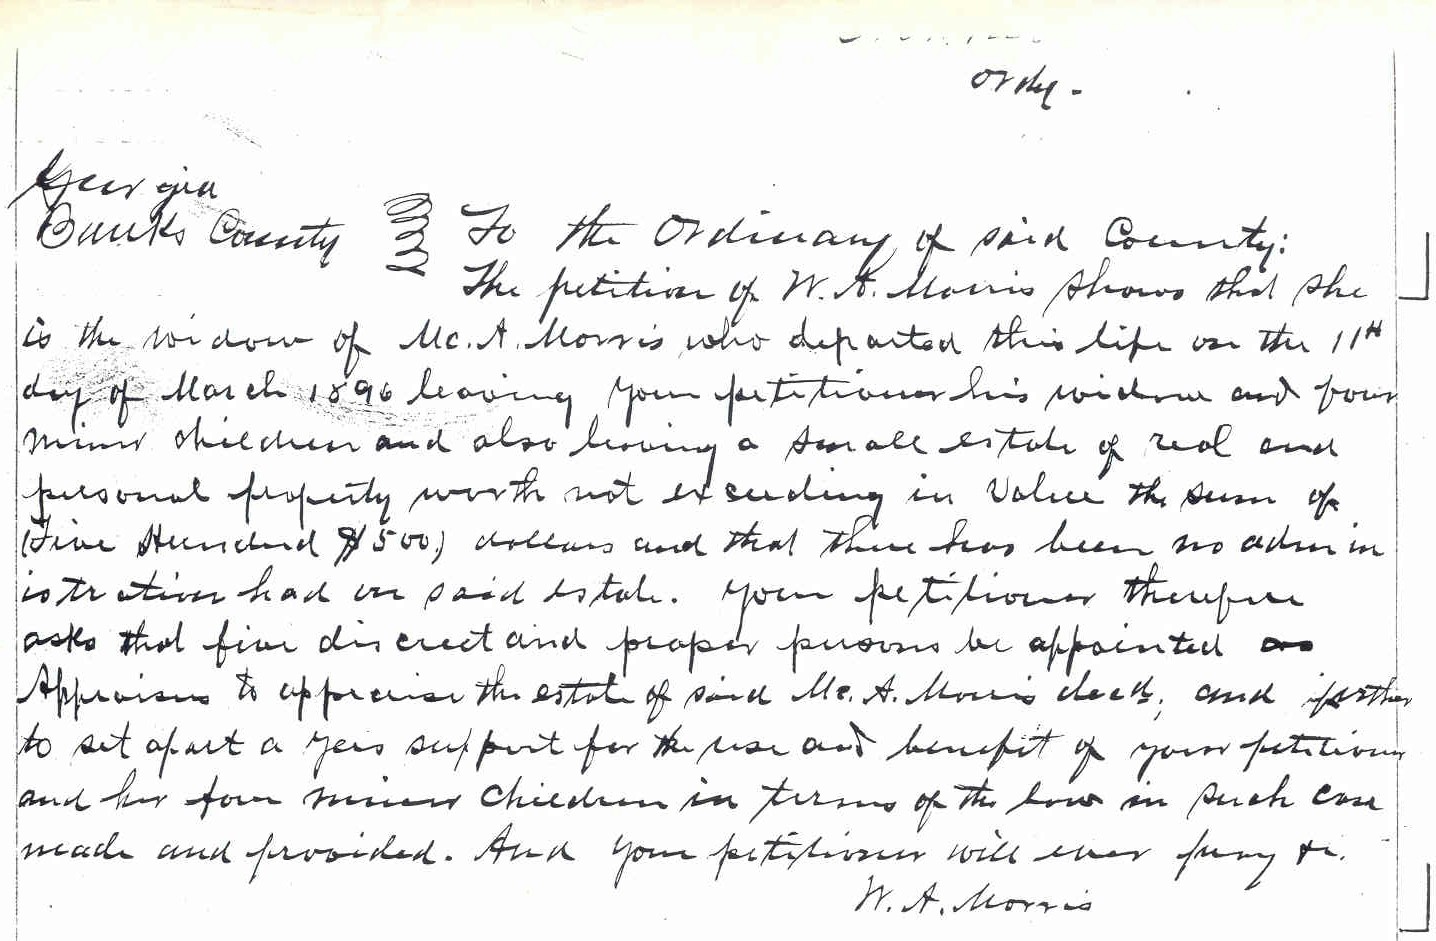 Ordy.
Georgia
Banks County } To the Ordinary of said County:
The petition of W. A. Morris shows that she
is the widow of Mc. A. Morris who departed this life on the 11th
day of March 1896 leaving your petitioner his widow and four
minor children and also leaving a small estate of real and
personal property worth not exceeding in Value the sum of
(Five Hundred $500) dollars and that there has been no admin
istration had on said estate. Your petitioner therefore
asks that five discreet and proper persons be appointed as
Appraisers to appraise the estate of said Mc. A. Morris decd; and further
to set apart a years support for the use and benefit of your petitioner
and her four minor children in terms of the law in such case
made and provided. And your petitioner will ever pray &c.
W. A. Morris